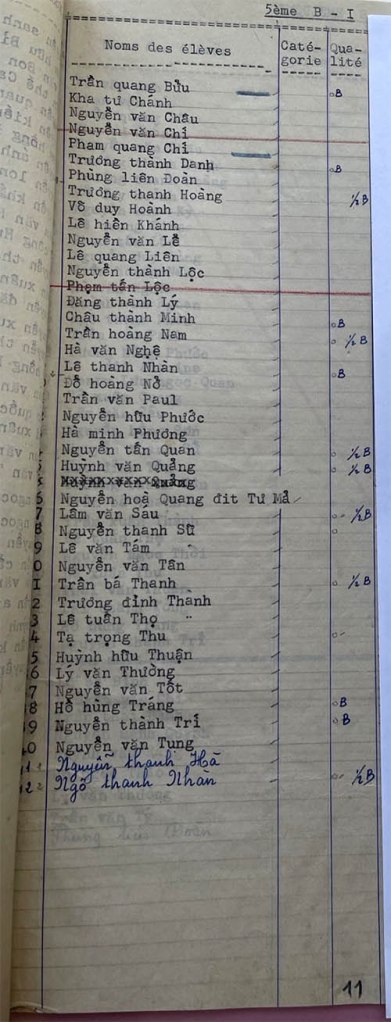 5ème B - I
Noms des élèves Caté-gorie Qua-lité
Trần quang Bửu oB
Kha tư Chánh
Nguyễn văn Châu
Nguyễn văn Chí
Pham quang Chi
Trương thành Danh oB
Phùng liên Đoàn
Trương thanh Hoàng ½B
Võ duy Hoành
Lê hiển Khánh
Nguyễn văn Lễ
Lê quang Liên
Nguyễn thành Lộc
Phạm tấn Lộc
Đặng thành Lý
Châu thành Minh oB
Trần hoàng Nam o ½B
Hà văn Nghệ
Lê thanh Nhàn oB
Đỗ hoàng Nở
Trần văn Paul
Nguyễn hữu Phước
Hà minh Phương
Nguyễn tấn Quan o ½B
Huỳnh văn Quảng o ½B
6 Nguyễn hoà Quang dit Tư Mả
7 Lâm văn Sáu o ½B
8 Nguyễn thanh Sử o
9 Lê văn Tâm
0 Nguyễn văn Tân
I Trần bá Thanh o ½B
2 Trương đình Thành
3 Lê tuấn Thọ
4 Tạ trọng Thu o
5 Huỳnh hữu Thuận
6 Lý văn Thường
7 Nguyễn văn Tốt
8 Hồ hùng Tráng oB
9 Nguyễn thành Trí oB
0 Nguyễn văn Tung
Nguyễn thanh Hà
Ngô thanh Nhàn o ½B
11